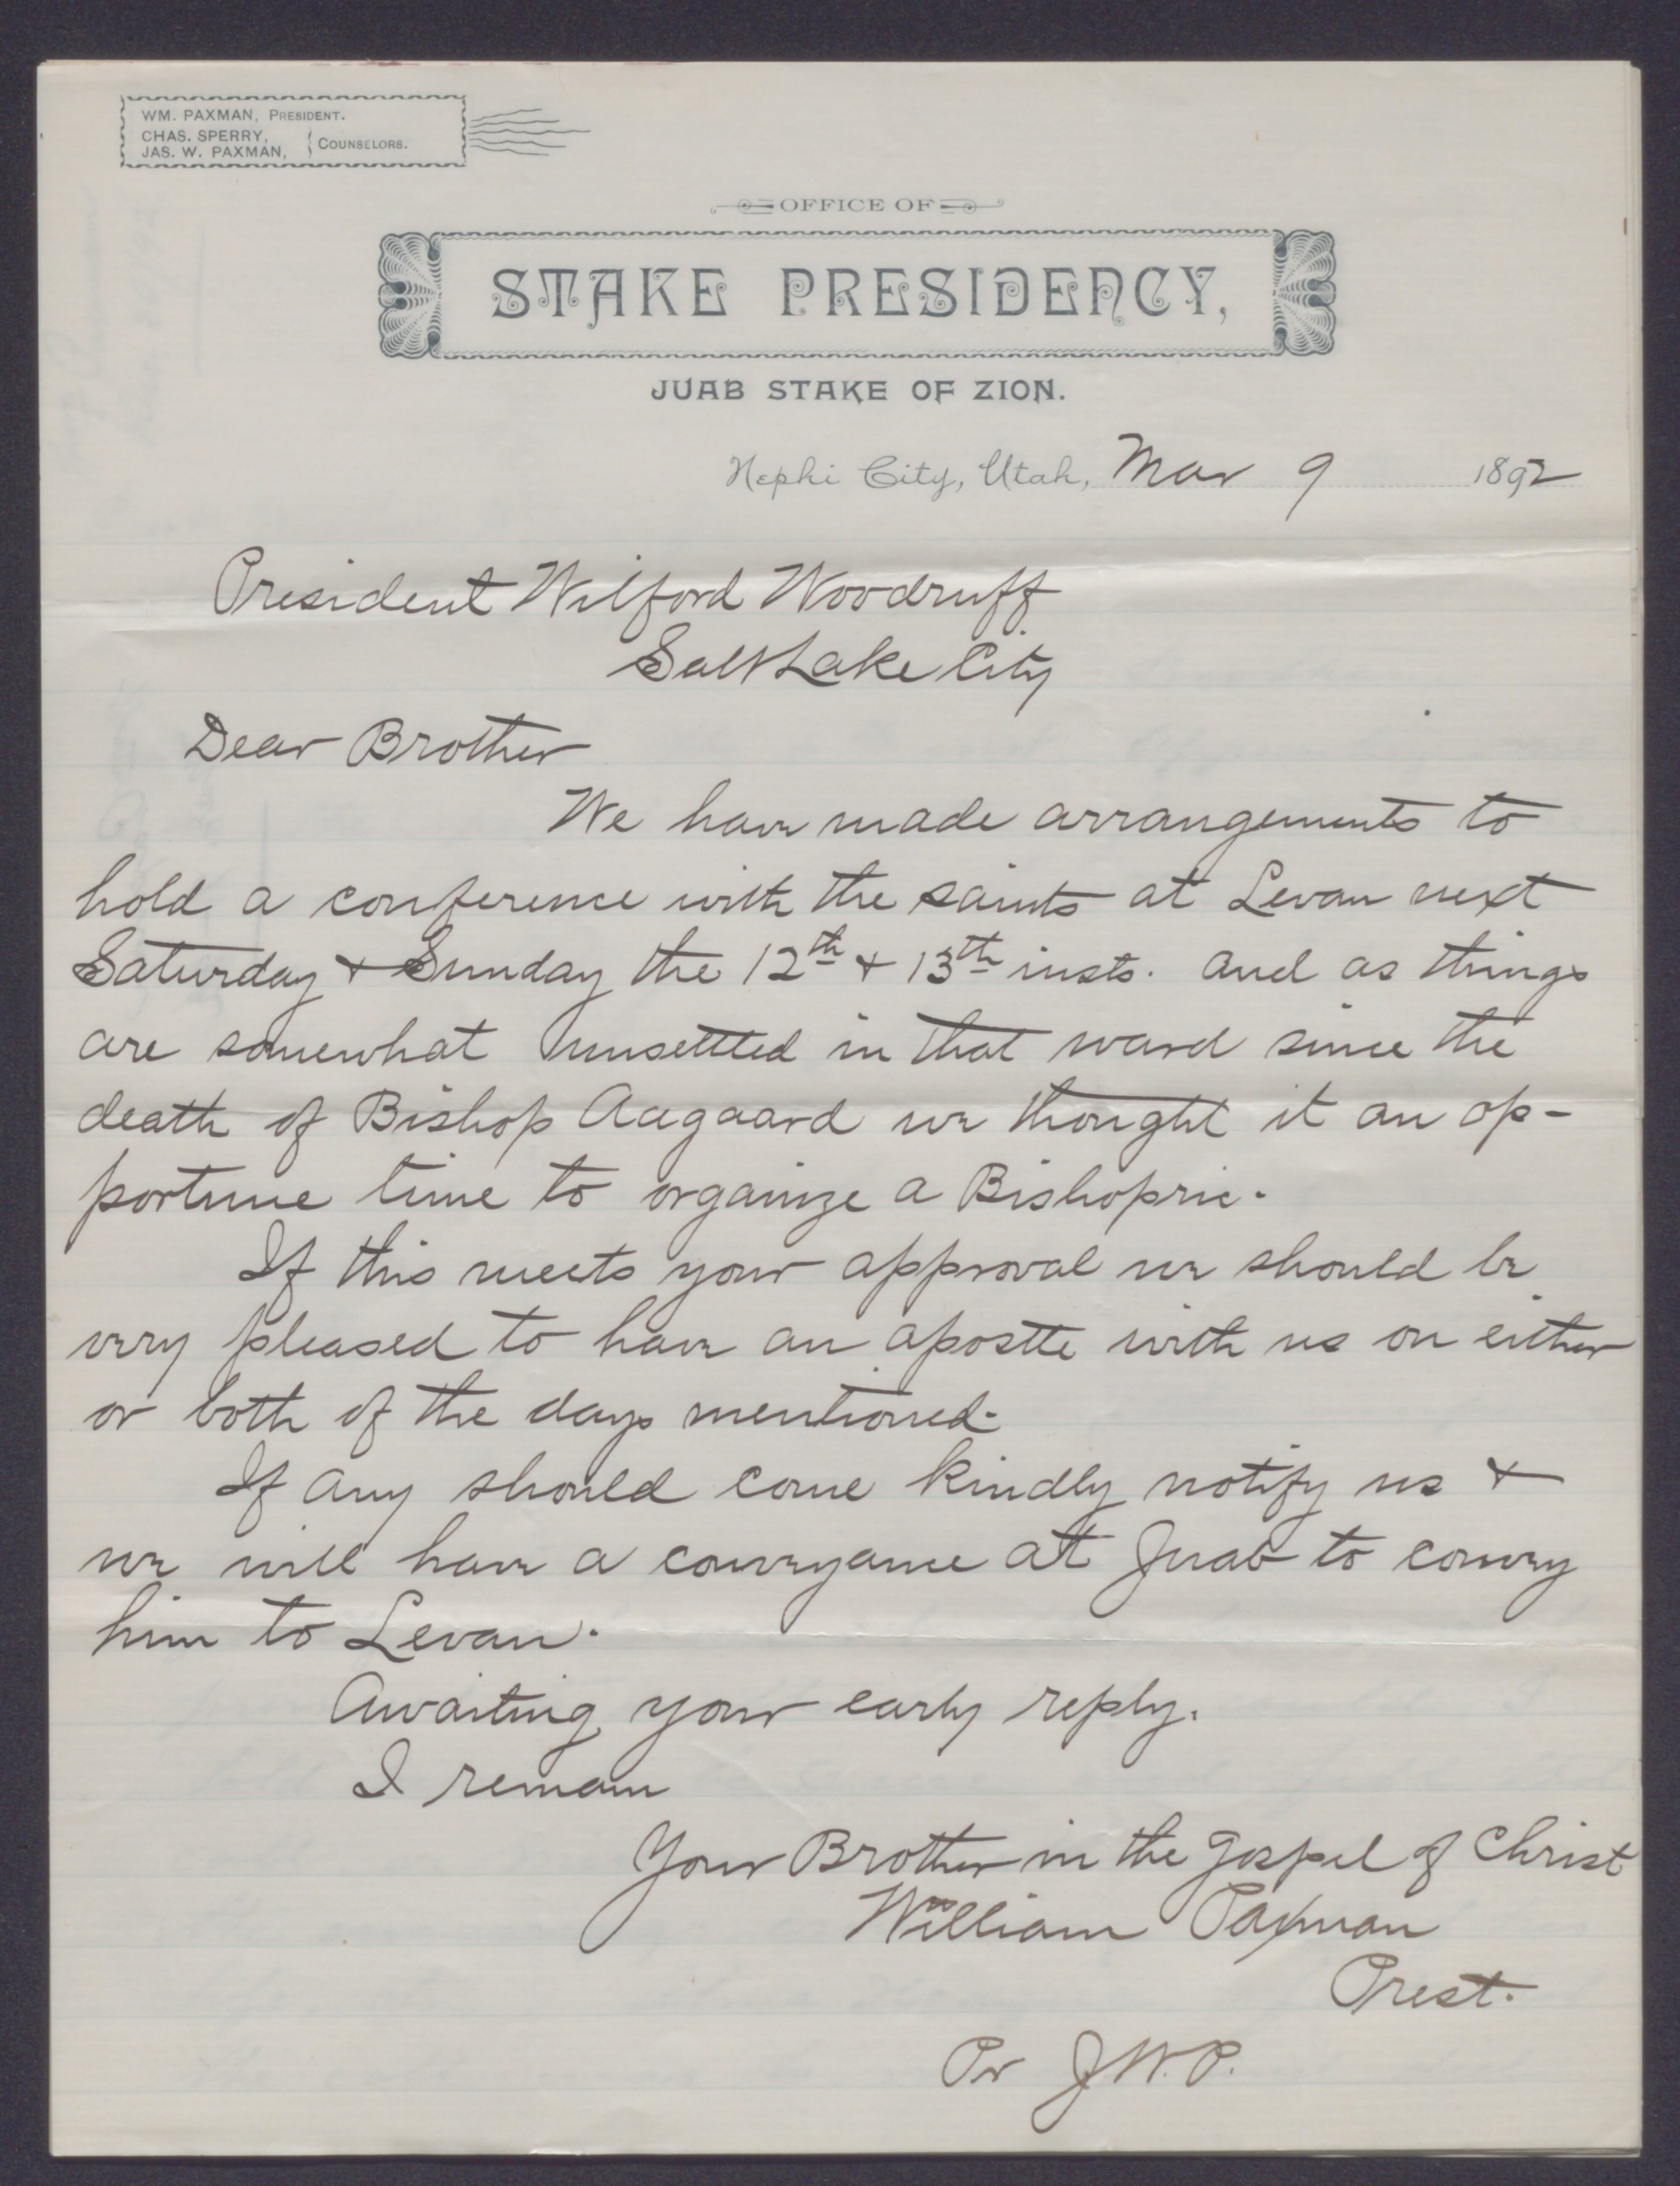 WM. PAXMAN, PRESIDENT.
CHAS. SPERRY,
JAS. W. PAXMAN, } COUNSELORS.
OFFICE OF
STAKE PRESIDENCY,
JUAB STAKE OF ZION.
Nephi City, Utah, Mar 9 1892
President Wilford Woodruff
Salt Lake City
Dear Brother
We have made arrangements to
hold a conference with the saints at Levan next
Saturday & Sunday the 12th & 13th insts. and as things
are somewhat unsettled in that ward since the
death of Bishop Aagaard we thought it an op-
portune time to organize a Bishopric.
If this meets your approval we should be
very pleased to have an apostle with us on either
or both of the days mentioned.
If any should come kindly notify us &
we will have a conveyance at Juab to convey
him to Levan.
Awaiting your early reply.
I remain
Your Brother in the Gospel of Christ
William Paxman
Prest.
Pr J.W.P.